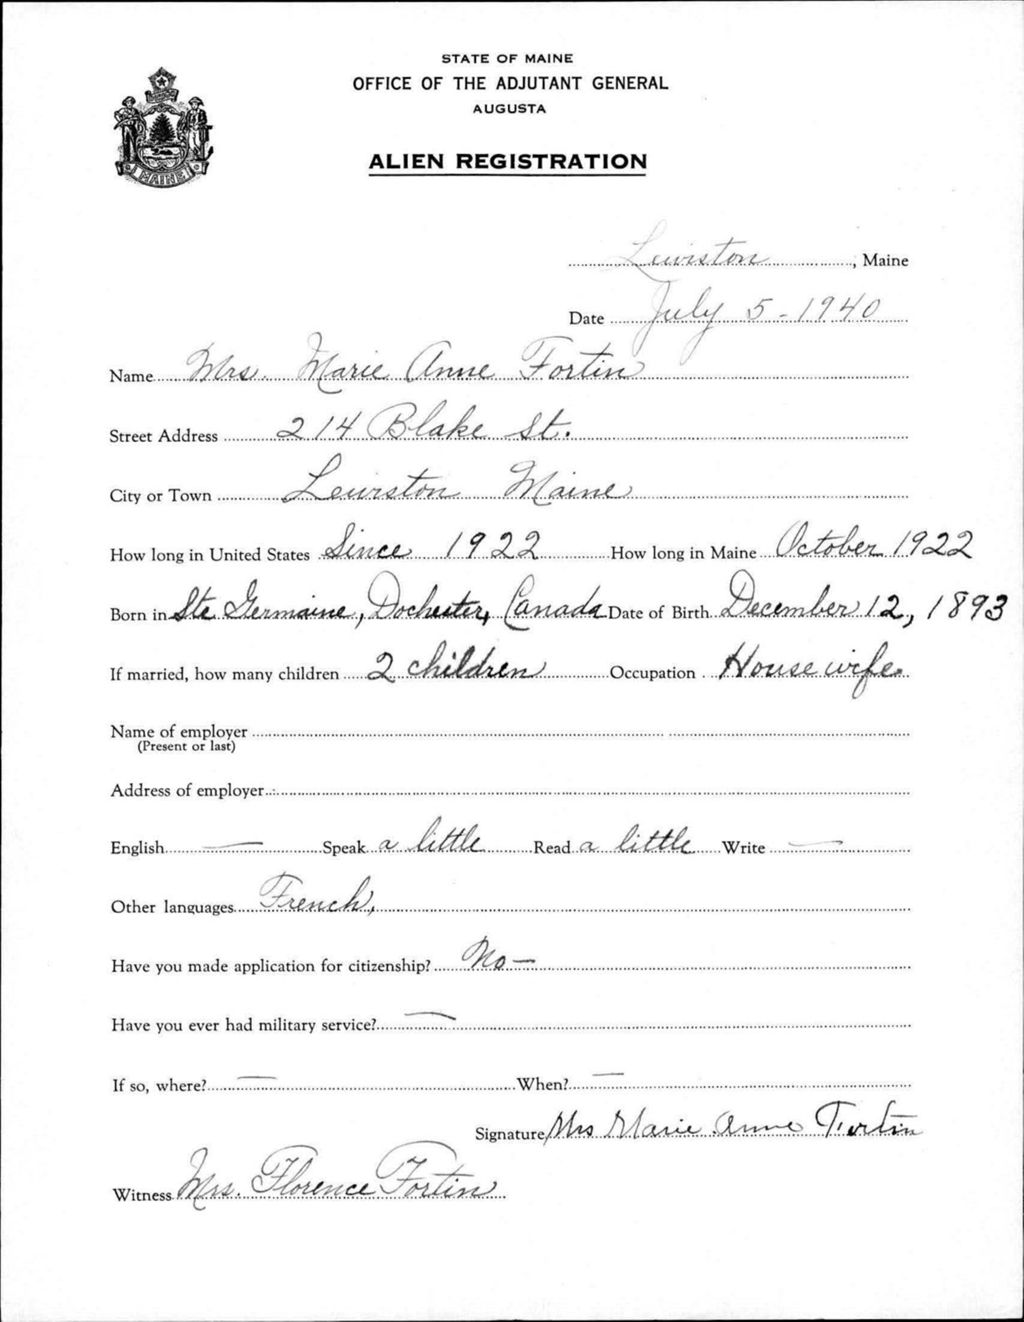 STATE OF MAINE
OFFICE OF THE ADJUTANT GENERAL
AUGUSTA
ALIEN REGISTRATION
MAINE
Lewiston, Maine
Date July 5 - 1940
Name Mrs. Marie Anne Fortin
Street Address 214 Blake St.
City or Town Lewiston Maine
How long in United States Since 1922 How long in Maine October 1922
Born in Ste Germaine, Dochester, Canada Date of Birth December 12, 1893
If married, how many children 2 children Occupation Housewife
Name of employer
(Present or last)
Address of employer
English — Speak a little Read a little Write —
Other languages French,
Have you made application for citizenship? No —
Have you ever had military service? —
If so, where? — When? —
Signature Mrs Marie Anne Fortin
Witness Mrs. Florence Fortin